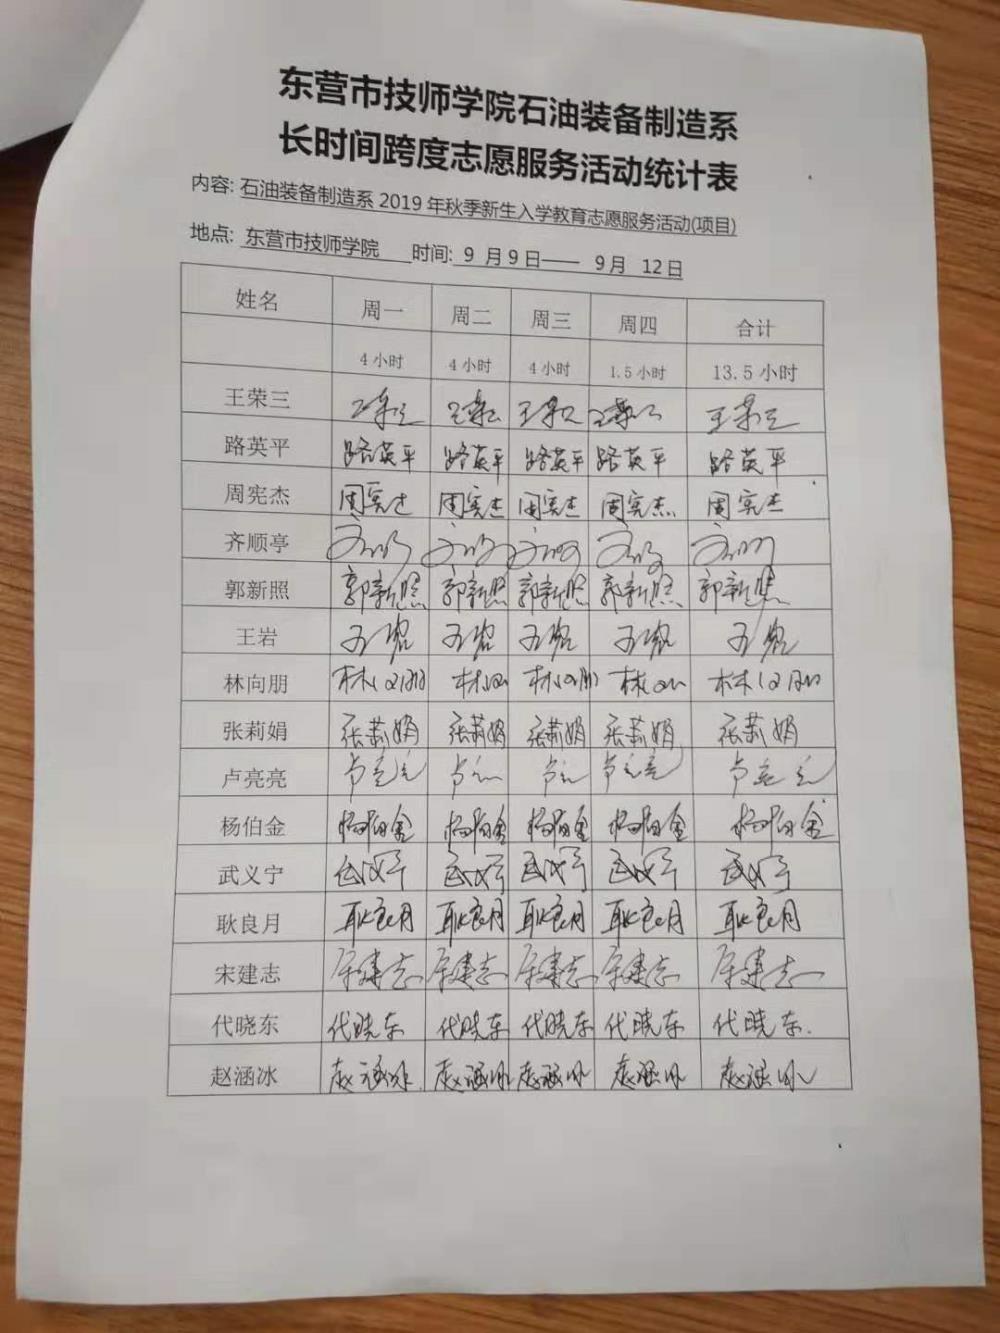 东营市技师学院石油装备制造系
长时间跨度志愿服务活动统计表
内容: 石油装备制造系 2019 年秋季新生入学教育志愿服务活动(项目)
地点: 东营市技师学院 时间: 9 月 9 日—— 9 月 12 日
姓名 周一 周二 周三 周四 合计
4 小时 4 小时 4 小时 1.5 小时 13.5 小时
王荣三
路英平 路英平 路英平 路英平 路英平 路英平
周宪杰 周宪杰 周宪杰 周宪杰 周宪杰 周宪杰
齐顺亭
郭新照 郭新照 郭新照 郭新照 郭新照 郭新照
王岩 王岩 王岩 王岩 王岩 王岩
林向朋
张莉娟 张莉娟 张莉娟 张莉娟 张莉娟 张莉娟
卢亮亮
杨伯金 杨伯金 杨伯金 杨伯金 杨伯金 杨伯金
武义宁 武义宁 武义宁 武义宁 武义宁 武义宁
耿良月 耿良月 耿良月 耿良月 耿良月 耿良月
宋建志 宋建志 宋建志 宋建志 宋建志 宋建志
代晓东 代晓东 代晓东 代晓东 代晓东 代晓东
赵涵冰 赵涵冰 赵涵冰 赵涵冰 赵涵冰 赵涵冰